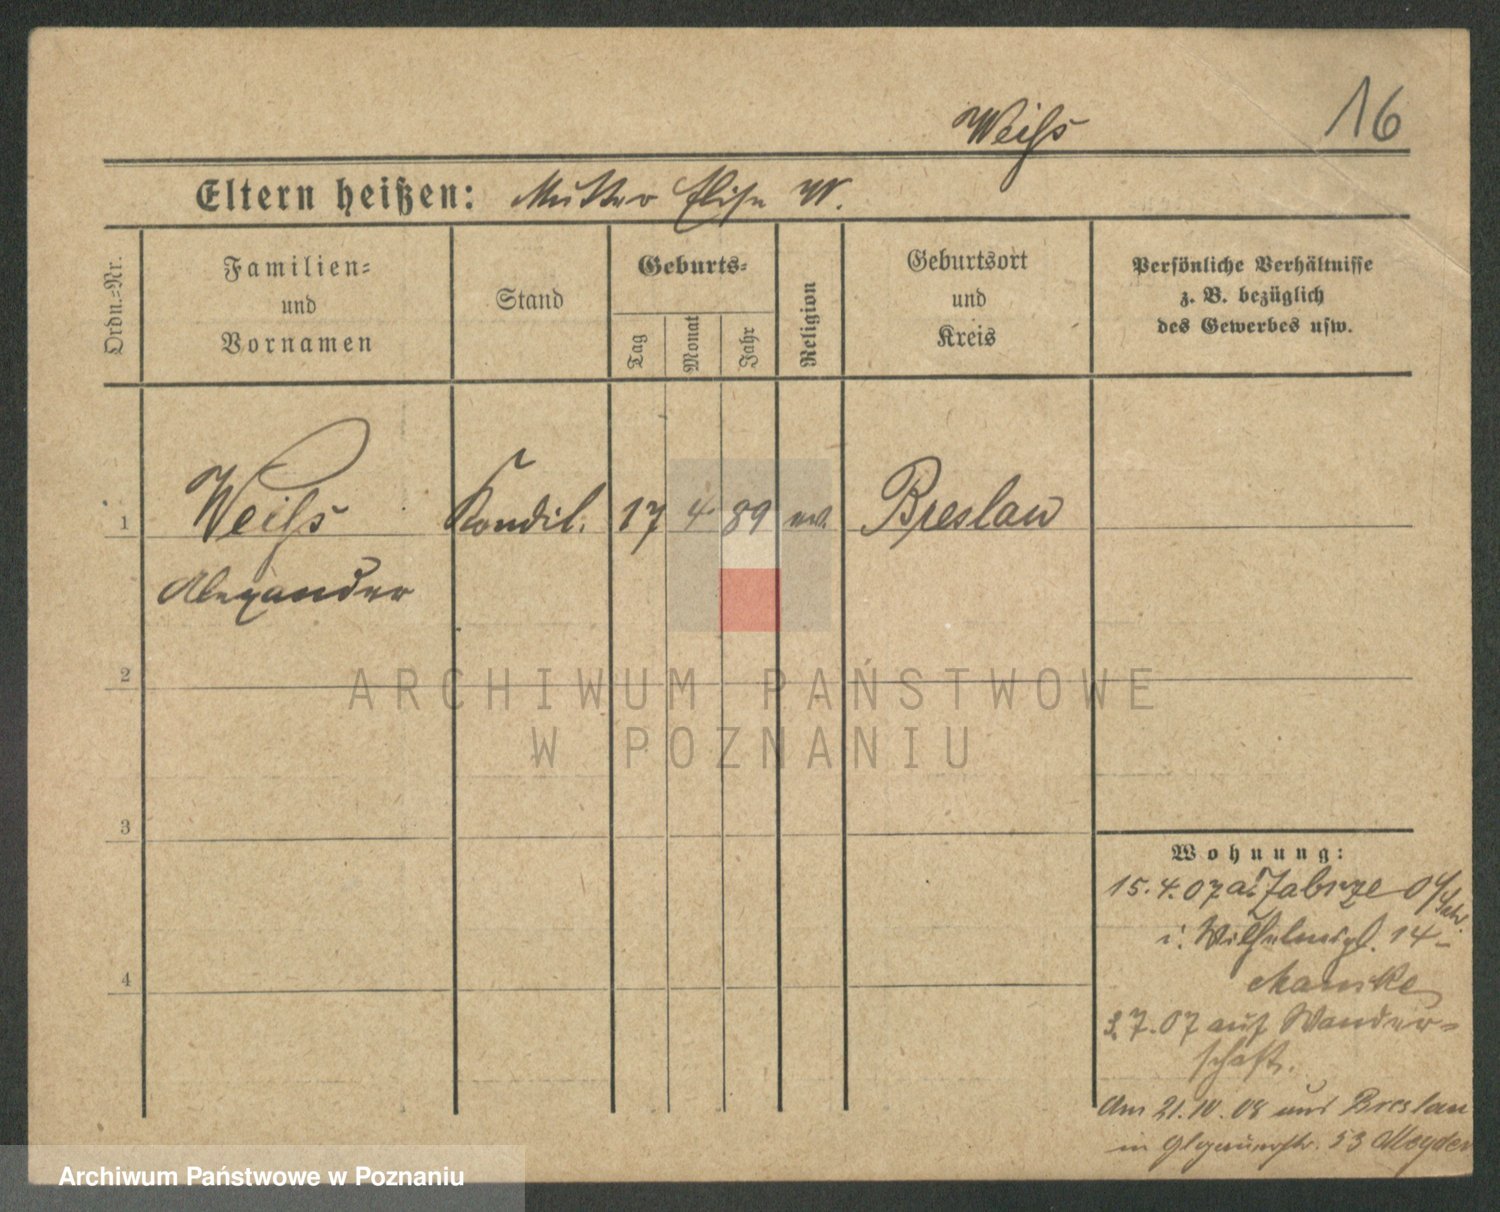 Weiß
16
Eltern heißen: Mutter Elise W.
Ordn.=Nr.
Familien=
und
Vornamen
Stand
Geburts=
Tag
Monat
Jahr
Religion
Geburtsort
und
Kreis
Persönliche Verhältnisse
z. B. bezüglich
des Gewerbes usw.
1 Weiß Kondit. 17 4 89 ev. Breslau
Alexander
2
3
4
Wohnung:
15.4.07 a. Zabrze
i. 14
Manske
3.7.07 auf Wander=
schaft.
Am 21.10.08 aus Breslau
in 53
ARCHIWUM PAŃSTWOWE
W POZNANIU
Archiwum Państwowe w Poznaniu